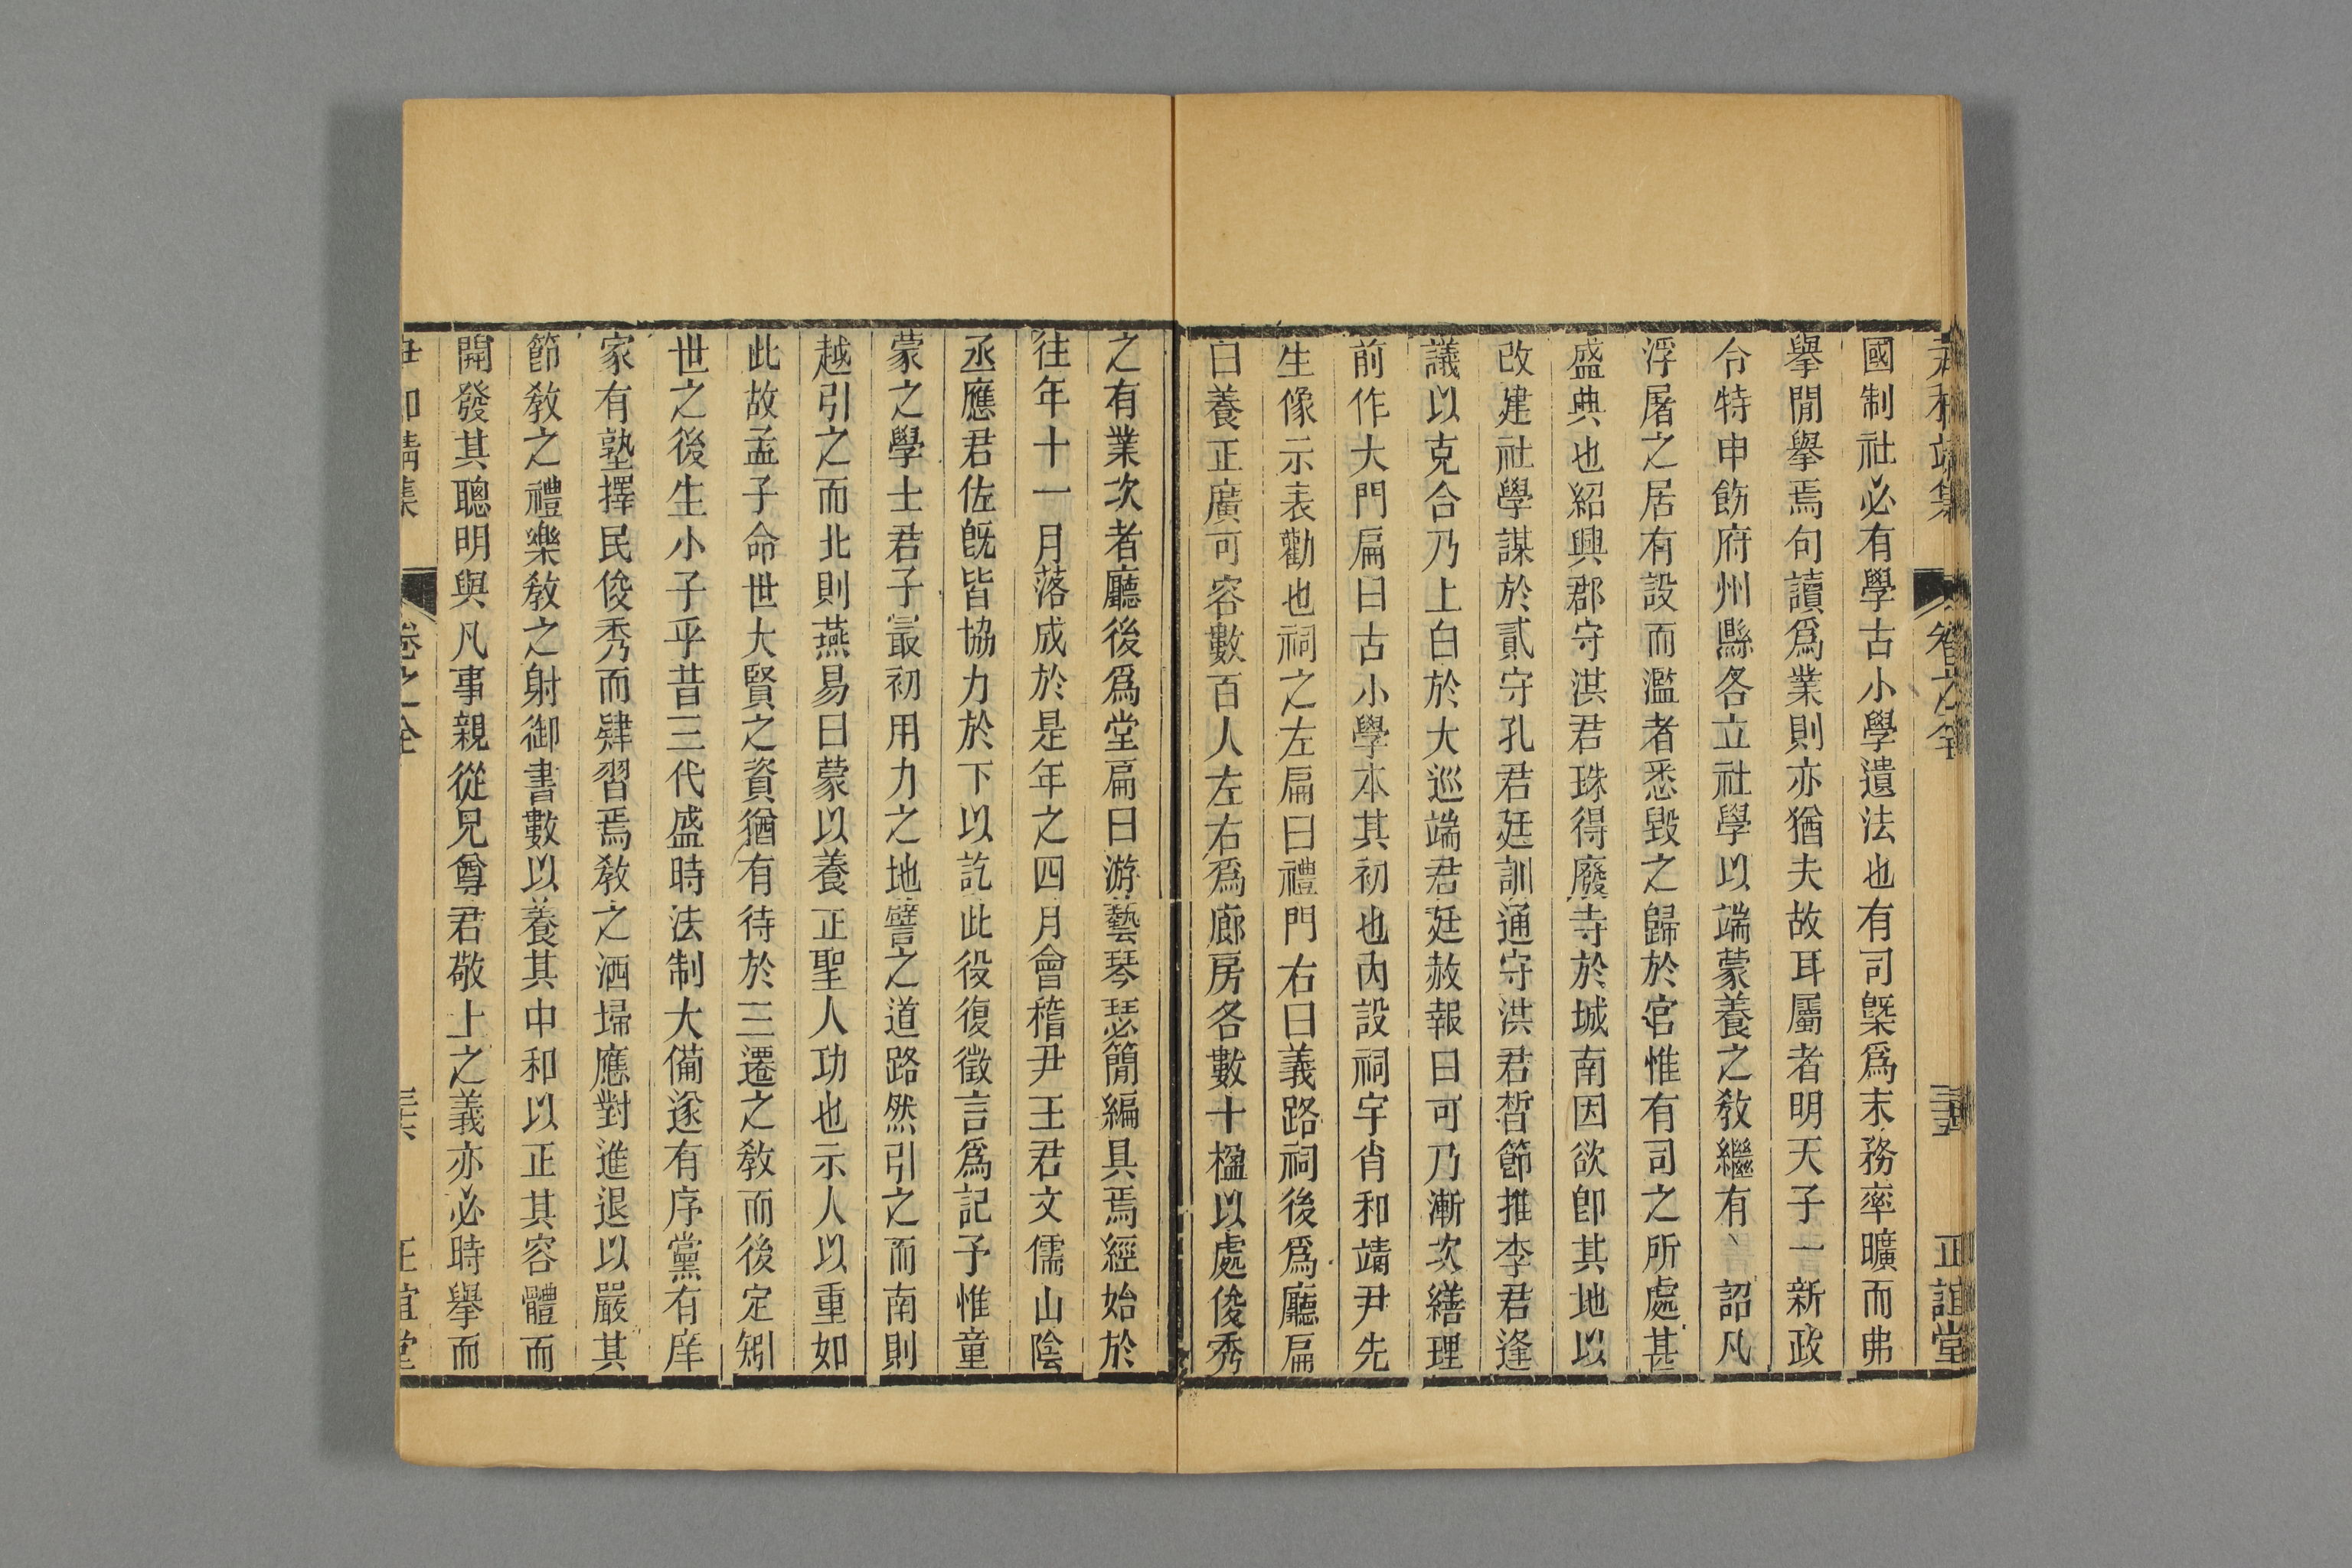 尹和靖集 卷之全 三五 正誼堂
國制社必有學古小學遺法也有司槩爲末務率曠而弗
擧閒擧焉句讀爲業則亦猶夫故耳屬者明天子一新政
令特申飭府州縣各立社學以端蒙養之敎繼有 詔凡
浮屠之居有設而濫者悉毀之歸於官惟有司之所處甚
盛典也紹興郡守淇君珠得廢寺於城南因欲卽其地以
改建社學謀於貳守孔君廷訓通守洪君晳節推李君逢
議以克合乃上白於大巡端君廷赦報曰可乃漸次繕理
前作大門扁曰古小學本其初也內設祠宇肖和靖尹先
生像示表勸也祠之左扁曰禮門右曰義路祠後爲廳扁
曰養正廣可容數百人左右爲廊房各數十楹以處俊秀
之有業次者廳後爲堂扁曰游藝琴瑟簡編具焉經始於
往年十一月落成於是年之四月會稽尹王君文儒山陰
丞應君佐旣皆協力於下以訖此役復徵言爲記予惟童
蒙之學士君子最初用力之地譬之道路然引之而南則
越引之而北則燕易曰蒙以養正聖人功也示人以重如
此故孟子命世大賢之資猶有待於三遷之敎而後定矧
世之後生小子乎昔三代盛時法制大備遂有序黨有庠
家有塾擇民俊秀而肄習焉敎之洒埽應對進退以嚴其
節敎之禮樂敎之射御書數以養其中和以正其容體而
開發其聰明與凡事親從兄尊君敬上之義亦必時擧而
尹和靖集 卷之全 三六 正誼堂